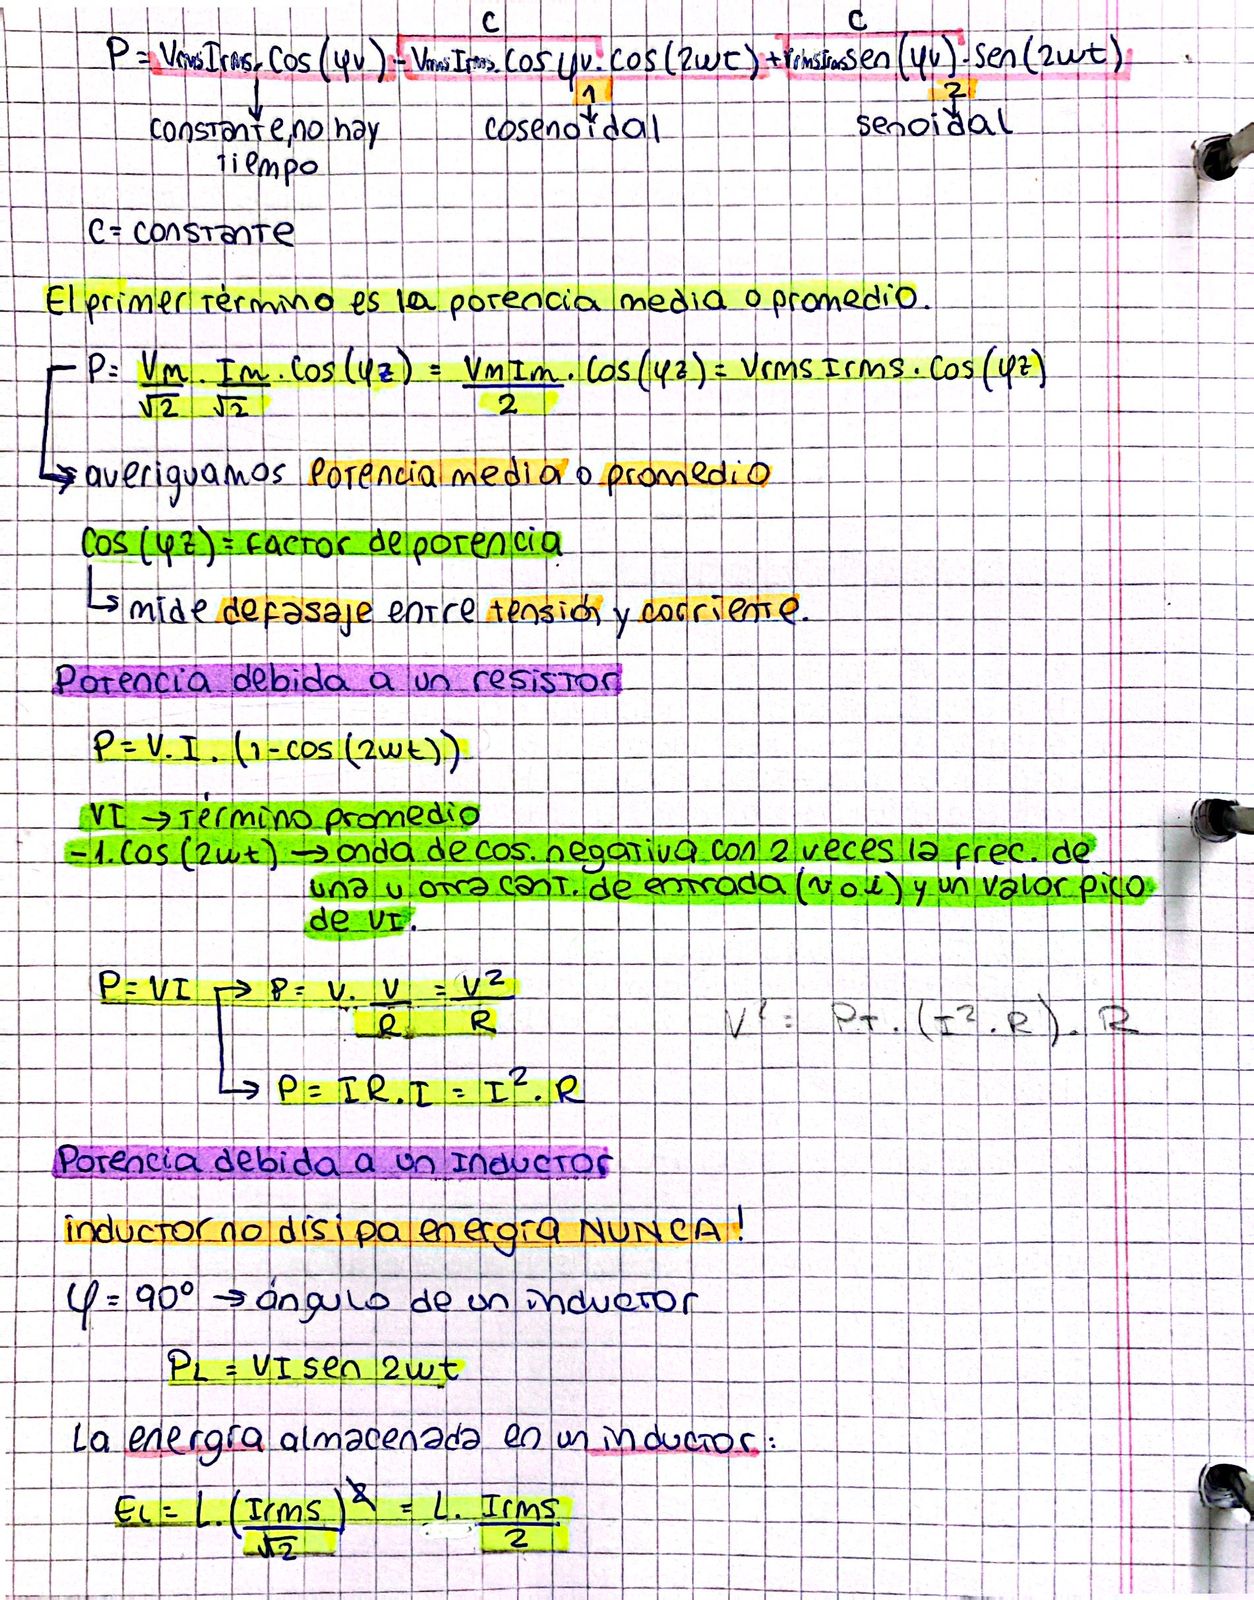 C C
P = VrmsIrms.Cos(φv) - VrmsIrms.Cosφv.cos(2wt) + VrmsIrmssen(φv).sen(2wt)
1 2
constante, no hay cosenoidal senoidal
tiempo
C = constante
El primer término es la potencia media o promedio.
P = Vm/√2 . Im/√2 . Cos(φz) = VmIm/2 . Cos(φz) = Vrms Irms . Cos(φz)
→ averiguamos Potencia media o promedio
Cos(φz) = Factor de potencia
↳ mide defasaje entre tensión y corriente.
Potencia debida a un resistor
P = V.I.(1-cos(2wt))
VI → Término promedio
-1.Cos(2wt) → onda de cos. negativa con 2 veces la frec. de
una u otra cant. de entrada (v o i) y un valor pico
de VI.
P = VI → P = V. V/R = V²/R
V² = PT . (I².R).R
→ P = IR.I = I².R
Potencia debida a un Inductor
inductor no disipa energía NUNCA!
φ = 90° → ángulo de un inductor
PL = VI sen 2wt
La energía almacenada en un inductor:
EL = L.(Irms/√2)² = L. Irms/2